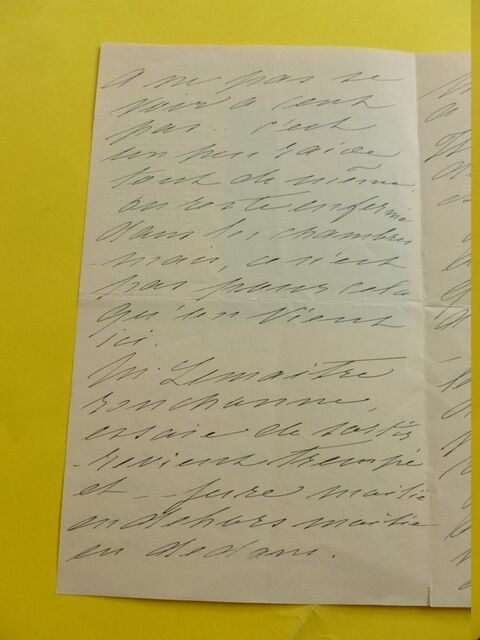 A ne pas se
voir à cent
pas. c'est
un peu raide
tout de même.
on reste enfermé
dans les chambres
mais, ce n'est
pas pour cela
qu'on vient
ici.
M. Lemaitre
ronchonne,
essaie de sortir
revient trempé
et - jure moitié
en dehors moitié
en dedans.